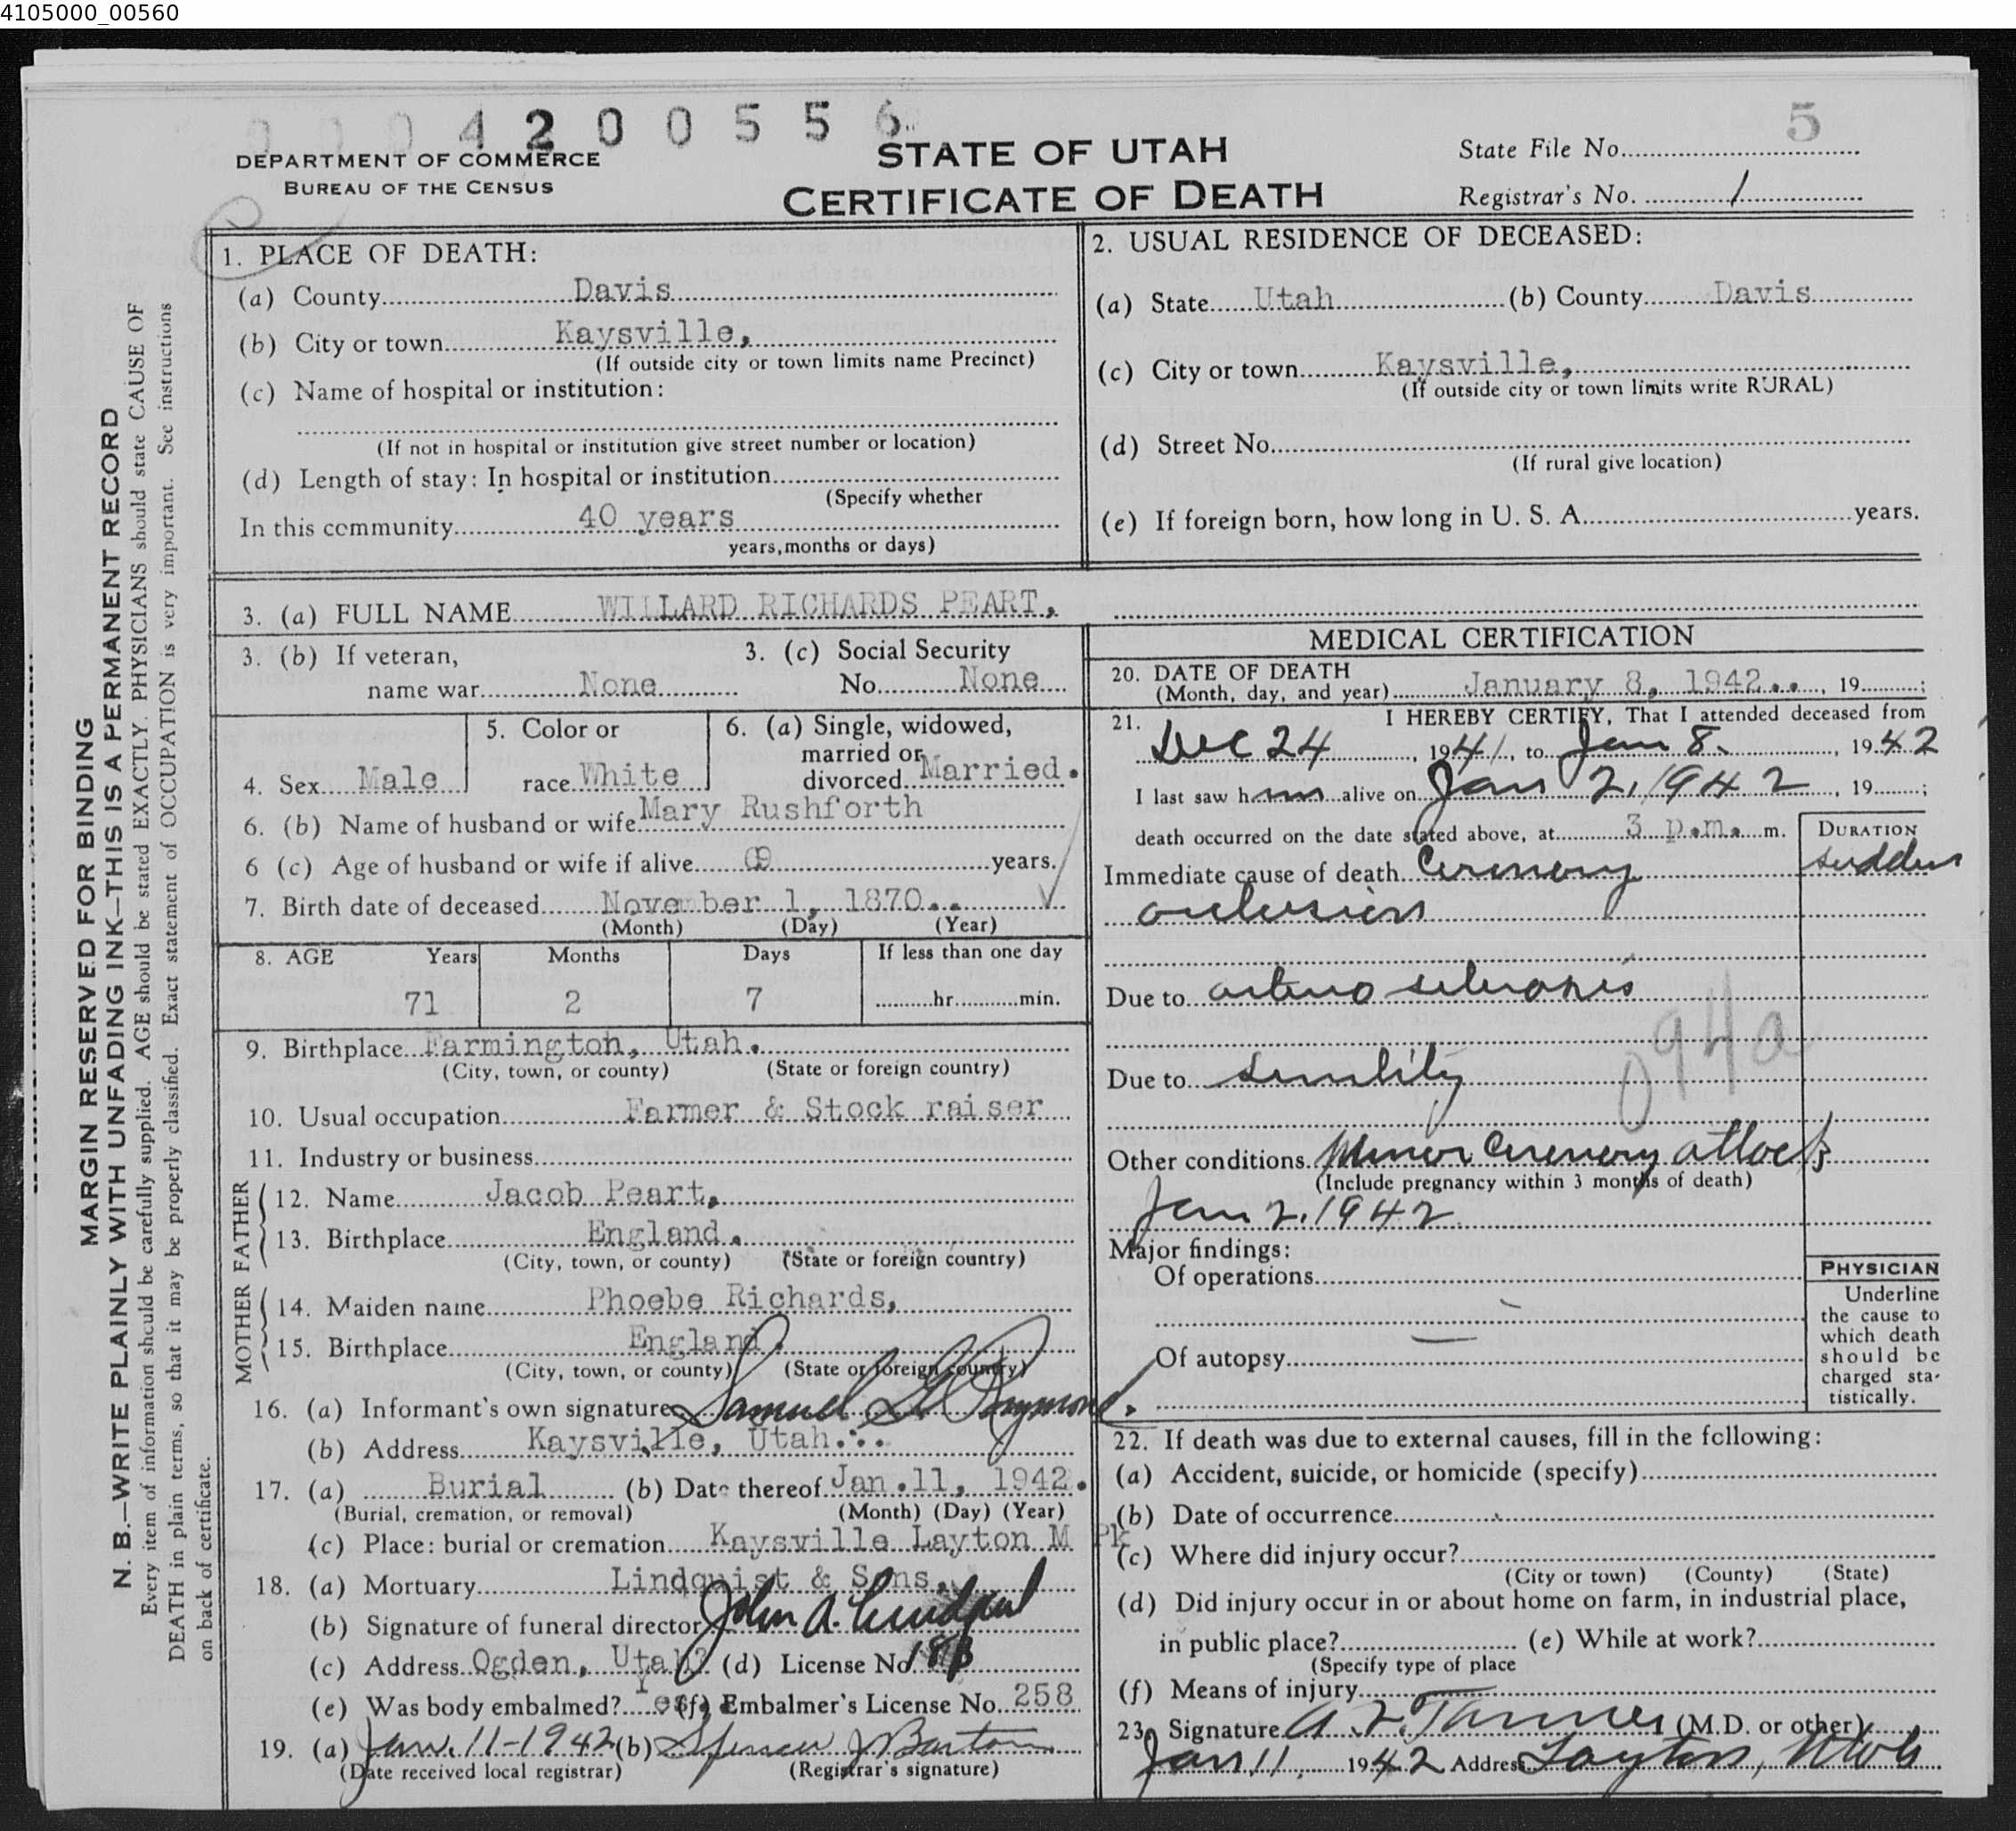 4105000_00560
0 0 0 4 2 0 0 5 5 6
5
DEPARTMENT OF COMMERCE
BUREAU OF THE CENSUS
STATE OF UTAH
CERTIFICATE OF DEATH
State File No.
Registrar's No. 1
MARGIN RESERVED FOR BINDING
N. B.—WRITE PLAINLY WITH UNFADING INK—THIS IS A PERMANENT RECORD
Every item of information should be carefully supplied. AGE should be stated EXACTLY. PHYSICIANS should state CAUSE OF
DEATH in plain terms, so that it may be properly classified. Exact statement of OCCUPATION is very important. See instructions
on back of certificate.
1. PLACE OF DEATH:
(a) County Davis
(b) City or town Kaysville,
(If outside city or town limits name Precinct)
(c) Name of hospital or institution:
(If not in hospital or institution give street number or location)
(d) Length of stay: In hospital or institution
(Specify whether
In this community 40 years
years, months or days)
2. USUAL RESIDENCE OF DECEASED:
(a) State Utah (b) County Davis
(c) City or town Kaysville,
(If outside city or town limits write RURAL)
(d) Street No.
(If rural give location)
(e) If foreign born, how long in U. S. A. years.
3. (a) FULL NAME WILLARD RICHARDS PEART,
3. (b) If veteran, 3. (c) Social Security
name war None No. None
4. Sex Male
5. Color or
race White
6. (a) Single, widowed,
married or
divorced Married.
6. (b) Name of husband or wife Mary Rushforth
6 (c) Age of husband or wife if alive years.
7. Birth date of deceased November 1, 1870..
(Month) (Day) (Year)
8. AGE Years Months Days If less than one day
71 2 7 hr. min.
9. Birthplace Farmington, Utah.
(City, town, or county) (State or foreign country)
10. Usual occupation Farmer & Stock raiser
11. Industry or business
FATHER
12. Name Jacob Peart,
13. Birthplace England.
(City, town, or county) (State or foreign country)
MOTHER
14. Maiden name Phoebe Richards,
15. Birthplace England.
(City, town, or county) (State or foreign country)
16. (a) Informant's own signature Samuel G Raymond.
(b) Address Kaysville, Utah...
17. (a) Burial (b) Date thereof Jan.11, 1942.
(Burial, cremation, or removal) (Month) (Day) (Year)
(c) Place: burial or cremation Kaysville Layton M Pk
18. (a) Mortuary Lindquist & Sons,
(b) Signature of funeral director John A. Lindquist
(c) Address Ogden, Utah (d) License No.
(e) Was body embalmed? Yes. (f) Embalmer's License No. 258
19. (a) Jan. 11-1942 (b) Spencer J Barton
(Date received local registrar) (Registrar's signature)
MEDICAL CERTIFICATION
20. DATE OF DEATH
(Month, day, and year) January 8, 1942.. , 19 ;
21. I HEREBY CERTIFY, That I attended deceased from
Dec 24, 1941, to Jan 8., 1942
I last saw him alive on Jan 2, 1942, 19 ;
death occurred on the date stated above, at 3 p.m. m.
DURATION
Immediate cause of death Cornory sudden
occlusion
Due to arterio sclerosis
094a
Due to senility
Other conditions Minor Cornory attack
(Include pregnancy within 3 months of death)
Jan 2. 1942
Major findings:
Of operations
Of autopsy
PHYSICIAN
Underline
the cause to
which death
should be
charged sta-
tistically.
22. If death was due to external causes, fill in the following:
(a) Accident, suicide, or homicide (specify)
(b) Date of occurrence
(c) Where did injury occur?
(City or town) (County) (State)
(d) Did injury occur in or about home on farm, in industrial place,
in public place? (e) While at work?
(Specify type of place
(f) Means of injury
23. Signature A Z. Tanner (M.D. or other)
Jan 11, 1942 Address Layton, Utah